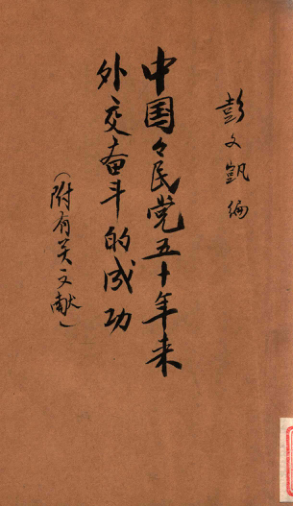 彭文凱编
中国々民党五十年来
外交奋斗的成功
(附有关文献)